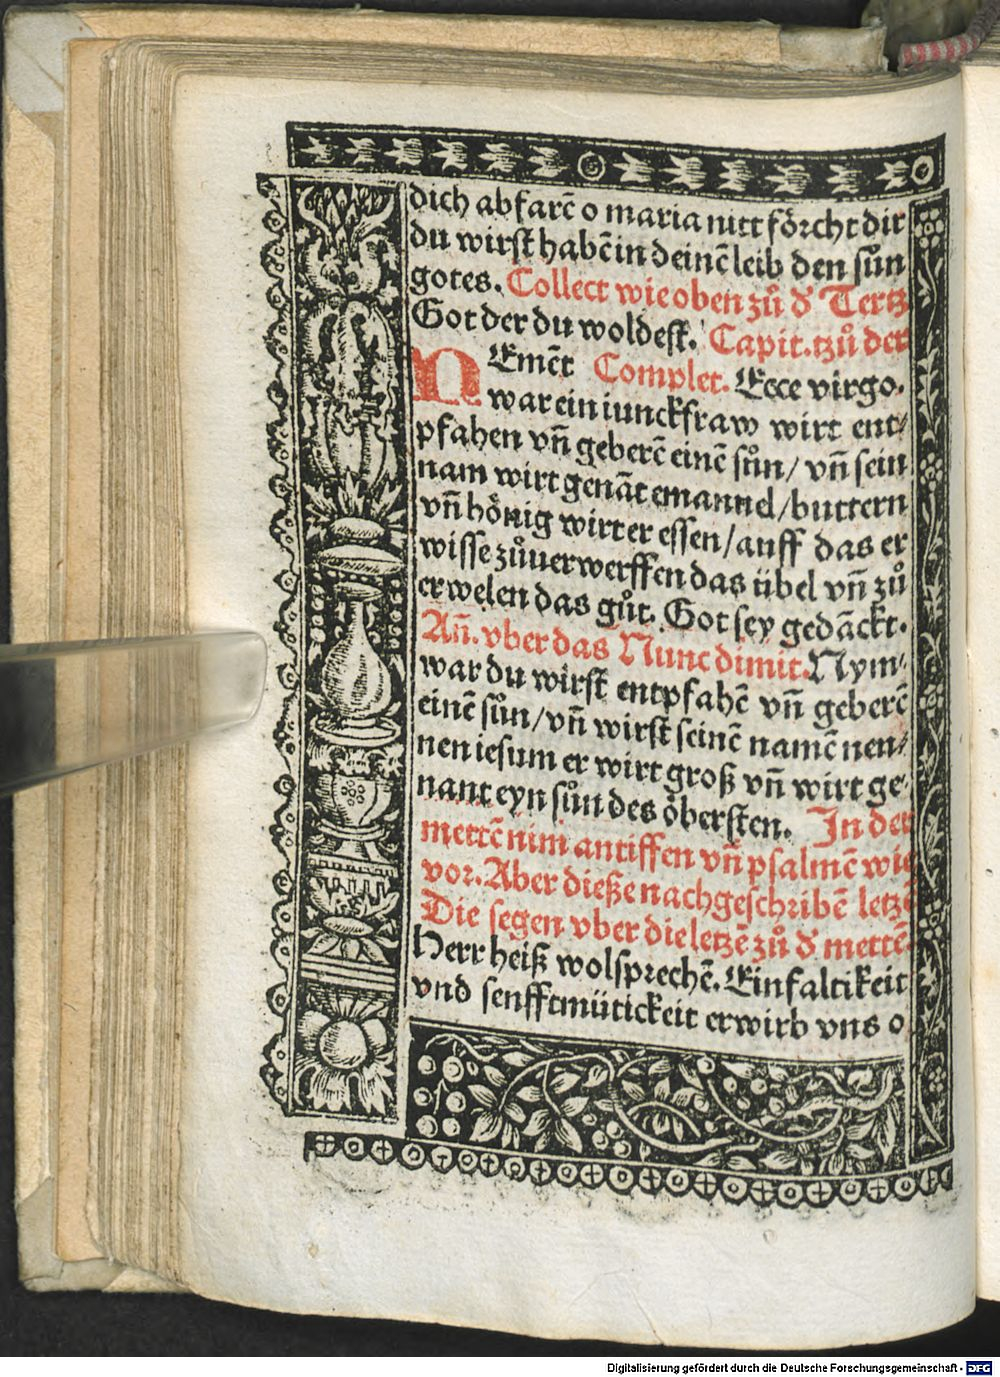 dich abfarē o maria nitt förcht dir
du wirst habē in deinē leib den sůn
gotes. Collect wie oben zů d̕ Tertz
Got der du woldest. Capit. tzů der
NEmēt Complet. Ecce virgo.
war ein iunckfraw wirt ent⸗
pfahen vn̄ geberē einē sůn/ vn̄ sein
nam wirt genāt emanuel/ buttern
vn̄ hönig wirt er essen/ auff das er
wisse zůuerwerffen das übel vn̄ zů
erwelen das gůt. Got sey gedāckt.
An̄. vber das Nunc dimit. Nym⸗
war du wirst entpfahē vn̄ geberē
einē sůn/ vn̄ wirst seinē namē nen⸗
nen iesum er wirt groß vn̄ wirt ge⸗
nant eyn sůn des öbersten. In der
mettē nim antiffen vn̄ psalmē wie
vor. Aber dieße nachgeschribē letzē
Die segen vber die letzē zů d̕ mettē.
Herr heiß wolsprechē. Einfaltikeit
vnd senfftmütickeit erwirb vns o
Digitalisierung gefördert durch die Deutsche Forschungsgemeinschaft - DFG